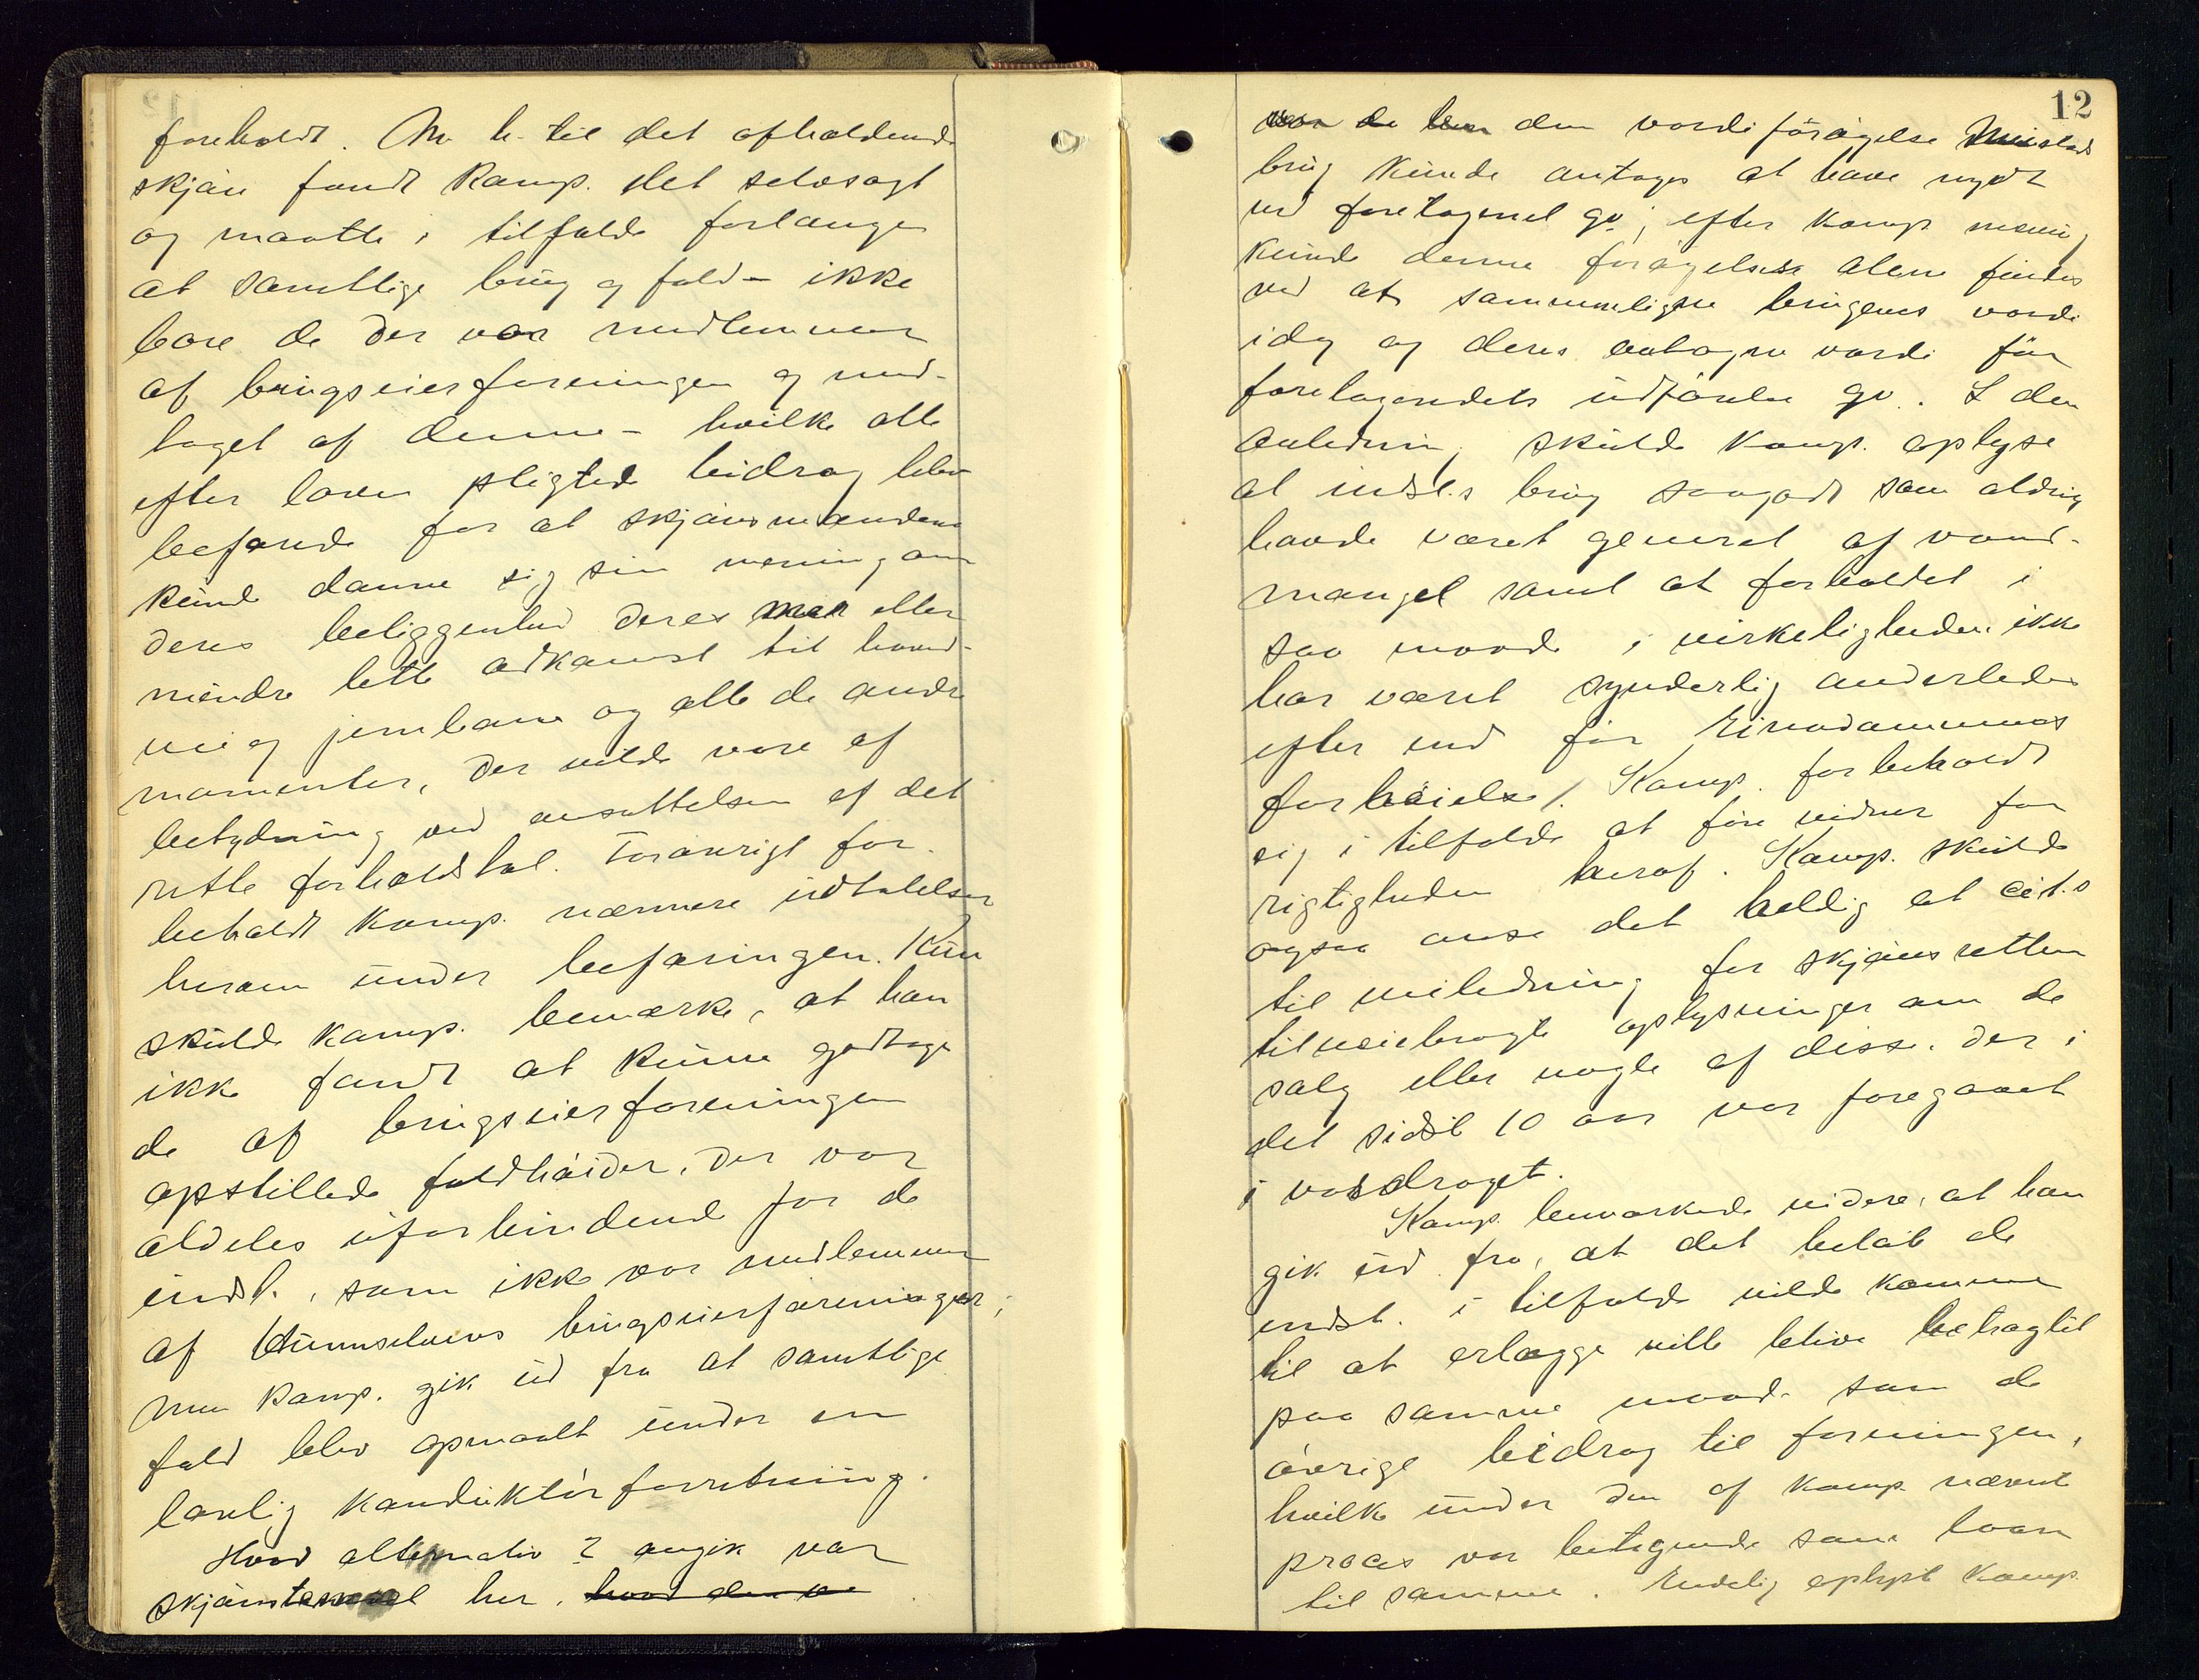 foreholdt. M. h. til det afholdende
skjøn fandt Komp. det selvsagt
og maatte i tilfælde forlange
at samtlige brug og fald – ikke
bare de der var medlemmer
af brugseierforeningen og med-
taget af denne – hvilke alle
efter loven pligted bidrag blev
befarede for at skjønsmændene
kunde danne sig sin mening om
deres beliggenhed deres mer eller
mindre lette adkomst til hoved-
vei og jernbane og alle de andre
momenter, der vilde være af
betydning ved ansættelsen af det
rette forholdstal. Forøvrigt for-
beholdt Komp. nærmere udtalelser
herom under befaringen. Kun
skulde Komp. bemærke, at han
ikke fandt at kunne godtage
de af brugseierforeningen
opstillede faldhøider, der var
aldeles uforbindende for de
indst., som ikke var medlemmer
af Hunnselvens brugseierforening;
men Komp. gik ud fra at samtlige
fald blev opmaalt under en
lovlig konduktørforretning.
Hvad alternativ 2 angik var
skjønstemaet her, hvad den ve
12
den værdiforøgelse Mustads
brug kunde antages at have nydt
ved foretagenet gr.; efter Komp. mening
kunde denne forøgelse alene findes
ved at sammenligne brugenes værdi
idag og deres antagne værdi før
foretagendets udførelse gr. I den
anledning skulde Komp. oplyse
at indst.s brug saagodt som aldrig
havde været generet af vand-
mangel samt at forholdet i
saa maade i virkeligheden ikke
har været synderlig anderledes
efter end før Einadammens
forhøielse. Komp. forbeholdt
sig i tilfælde at føre vidner for
rigtigheden heraf. Komp. skulde
ogsaa anse det heldig at cit.s
til veiledning for skjønsretten
tilveiebragte oplysninger om de
salg eller nogle af disse, der i
det sidste 10 aar var foregaaet
i vasdraget.
Komp. bemærkede videre, at han
gik ud fra, at det beløb de
indst. i tilfælde vilde komme
til at erlægge ville blive betragtet
paa samme maade som de
øvrige bidrag til foreningen,
hvilke under den af Komp. nævnte
proces var betegnede som laan
til samme. Endelig oplyste Komp.